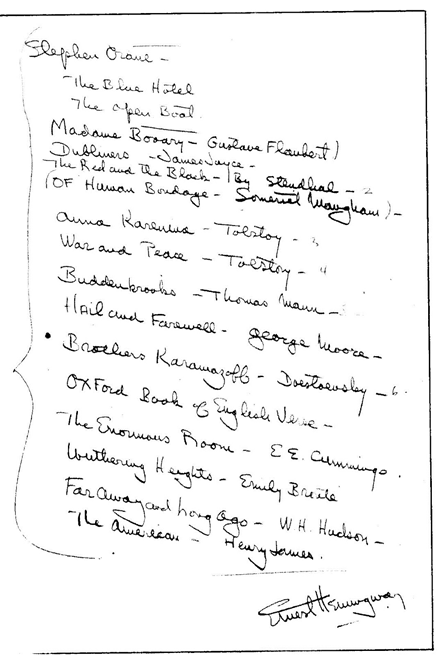 Stephen Crane -
The Blue Hotel
The Open Boat
Madame Bovary - Gustave Flaubert)
Dubliners - James Joyce -
The Red and the Black - By Stendhal - 2
(OF Human Bondage - Somerset Maugham) -
Anna Karenina - Tolstoy - 3
War and Peace - Tolstoy - 4
Buddenbrooks - Thomas Mann -
Hail and Farewell - George Moore -
Brothers Karamazoff - Doestoevsky - 6.
OxFord Book of English Verse -
The Enormous Room - E.E. Cummings.
Wuthering Heights - Emily Bronte
Far Away and Long Ago - W.H. Hudson -
The American - Henry James.
Ernest Hemingway